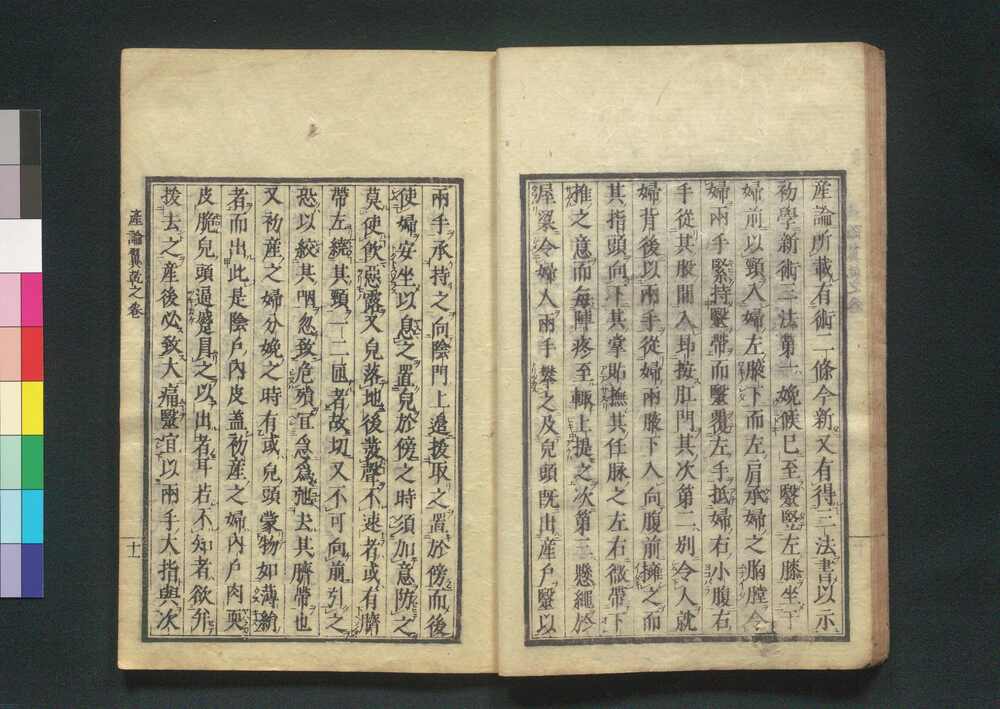 産論所載有術一條今新又有得三法書以示
初學新術三法第一娩候已至毉竪左膝坐于
婦前以頸入婦左腋下而左肩承婦之胸膛令
婦兩手緊持毉帶而毉覆左手抵婦右小腹右
手從其股間入抑按肛門其次第二別令人就
婦背後以兩手從婦兩腋下入向腹前擁之而
其指頭向下其掌貼撫其任脉之左右微帶下
推之意而每陣疼至輙上提之次第三懸繩於
屋梁令婦人兩手攀之及兒頭既出産戸毉以
兩手承持之向陰門上邉拔取之置於傍而後
使婦安坐以息之置兒於傍之時須加意防之
莫使飮惡露又兒落地後發聲不速者或有臍
帶左繞其頸一二匝者故切又不可向前引之
恐以絞其吭忽致危殞宜急爲弛去其臍帶也
又初産之婦分娩之時有或兒頭蒙物如薄絹
者而出此是陰戸内皮蓋初産之婦内戸肉耎
皮脆兒頭逼蹙冐之以出者耳若不知者欲弁
拔去之産後必致大痛毉宜以兩手大指與次
産論翼乾之卷
十一